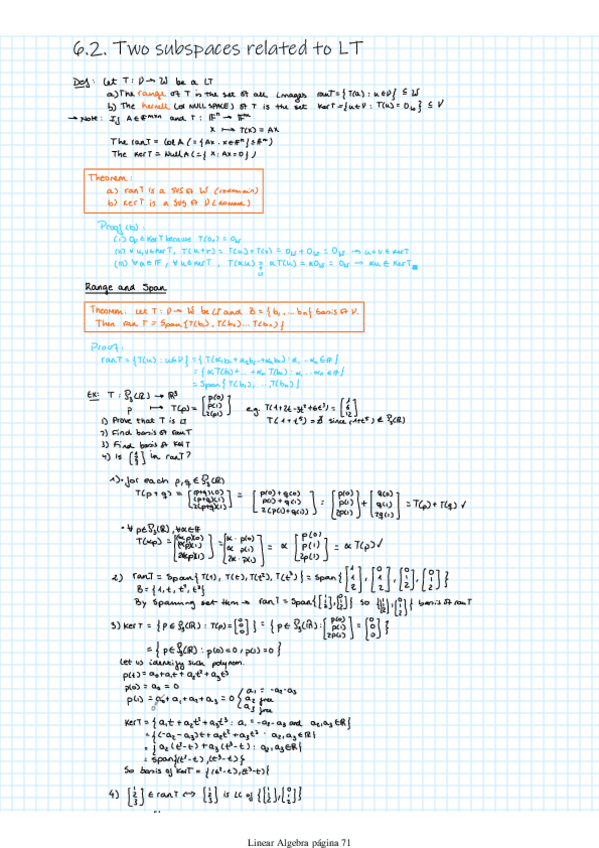 6.2. Two subspaces related to LT
Def: Let T: V→W be a LT
a) The range of T is the set of all images ranT = {T(u) : u∈V} ≤ W
b) The kernel (or NULL SPACE) of T is the set KerT = {u∈V : T(u) = 0w} ≤ V
→ Note: If A∈F^mxn and T: F^n → F^m
x ↦ T(x) = Ax
The ranT = Col A (= {Ax : x∈F^n} ≤ F^m)
The kerT = Null A (= {x : Ax=0})
Theorem:
a) ranT is a SUS of W (codomain)
b) kerT is a SUS of V (domain)
Proof (b):
(i) 0v ∈ KerT because T(0v) = 0w
(ii) ∀ u,v∈kerT, T(u+v) = T(u)+T(v) = 0w + 0w = 0w → u+v ∈ kerT
(iii) ∀α∈F, ∀u∈kerT, T(αu) = αT(u) = α0w = 0w → αu ∈ KerT
Range and Span
Theorem: Let T: V→W be LT and B = {b1, ... bn} basis of V.
Then ran T = Span{T(b1), T(b2) ... T(bn)}
Proof:
ranT = {T(u) : u∈V} = {T(α1b1 + α2b2 + ... + αnbn) : α1 ... αn ∈ F}
= {α1T(b1) + ... + αn T(bn) : α1 ... αn ∈ F}
= Span{T(b1), ..., T(bn)}
Ex: T: P3(R) → R^3
p ↦ T(p) = [p(0) p(1) 2p(1)] e.g. T(1+2t-3t²+6t³) = [1 6 12]
T(1+t⁵) = ∄ since (1+t⁵) ∉ P3(R)
1) Prove that T is LT
2) Find basis of ranT
3) Find basis of KerT
4) Is [1 2 3] in ranT?
1) · for each p,q ∈ P3(R)
T(p+q) = [(p+q)(0) (p+q)(1) 2(p+q)(1)] = [p(0)+q(0) p(1)+q(1) 2(p(1)+q(1))] = [p(0) p(1) 2p(1)] + [q(0) q(1) 2q(1)] = T(p)+T(q) ✓
· ∀ p∈P3(R), ∀α∈F
T(αp) = [(αp)(0) (αp)(1) 2(αp)(1)] = [α·p(0) α·p(1) 2α·p(1)] = α [p(0) p(1) 2p(1)] = αT(p) ✓
2) ranT = Span{T(1), T(t), T(t²), T(t³)} = span{[1 1 2], [0 1 2], [0 1 2], [0 1 2]}
B = {1, t, t², t³}
By spanning set thm → ranT = Span{[1 1 2], [0 1 2]} so {[1 1 2], [0 1 2]} basis of ranT
3) KerT = {p∈P3(R) : T(p) = [0 0 0]} = {p∈P3(R) : [p(0) p(1) 2p(1)] = [0 0 0]}
= {p∈P3(R) : p(0)=0, p(1)=0}
Let us identify such polynom.
p(t) = a0 + a1t + a2t² + a3t³
p(0) = a0 = 0
p(1) = a0 + a1 + a2 + a3 = 0 { a1 = -a2-a3
a2 free
a3 free
KerT = {a1t + a2t² + a3t³ : a1 = -a2-a3 and a2,a3∈R}
= {(-a2-a3)t + a2t² + a3t³ : a2,a3∈R}
= {a2(t²-t) + a3(t³-t) : a2,a3∈R}
= span{(t²-t), (t³-t)}
So basis of KerT = {(t²-t), (t³-t)}
4) [1 2 3] ∈ ranT ⟷ [1 2 3] is LC of {[1 1 2], [0 1 2]}
Linear Algebra página 71